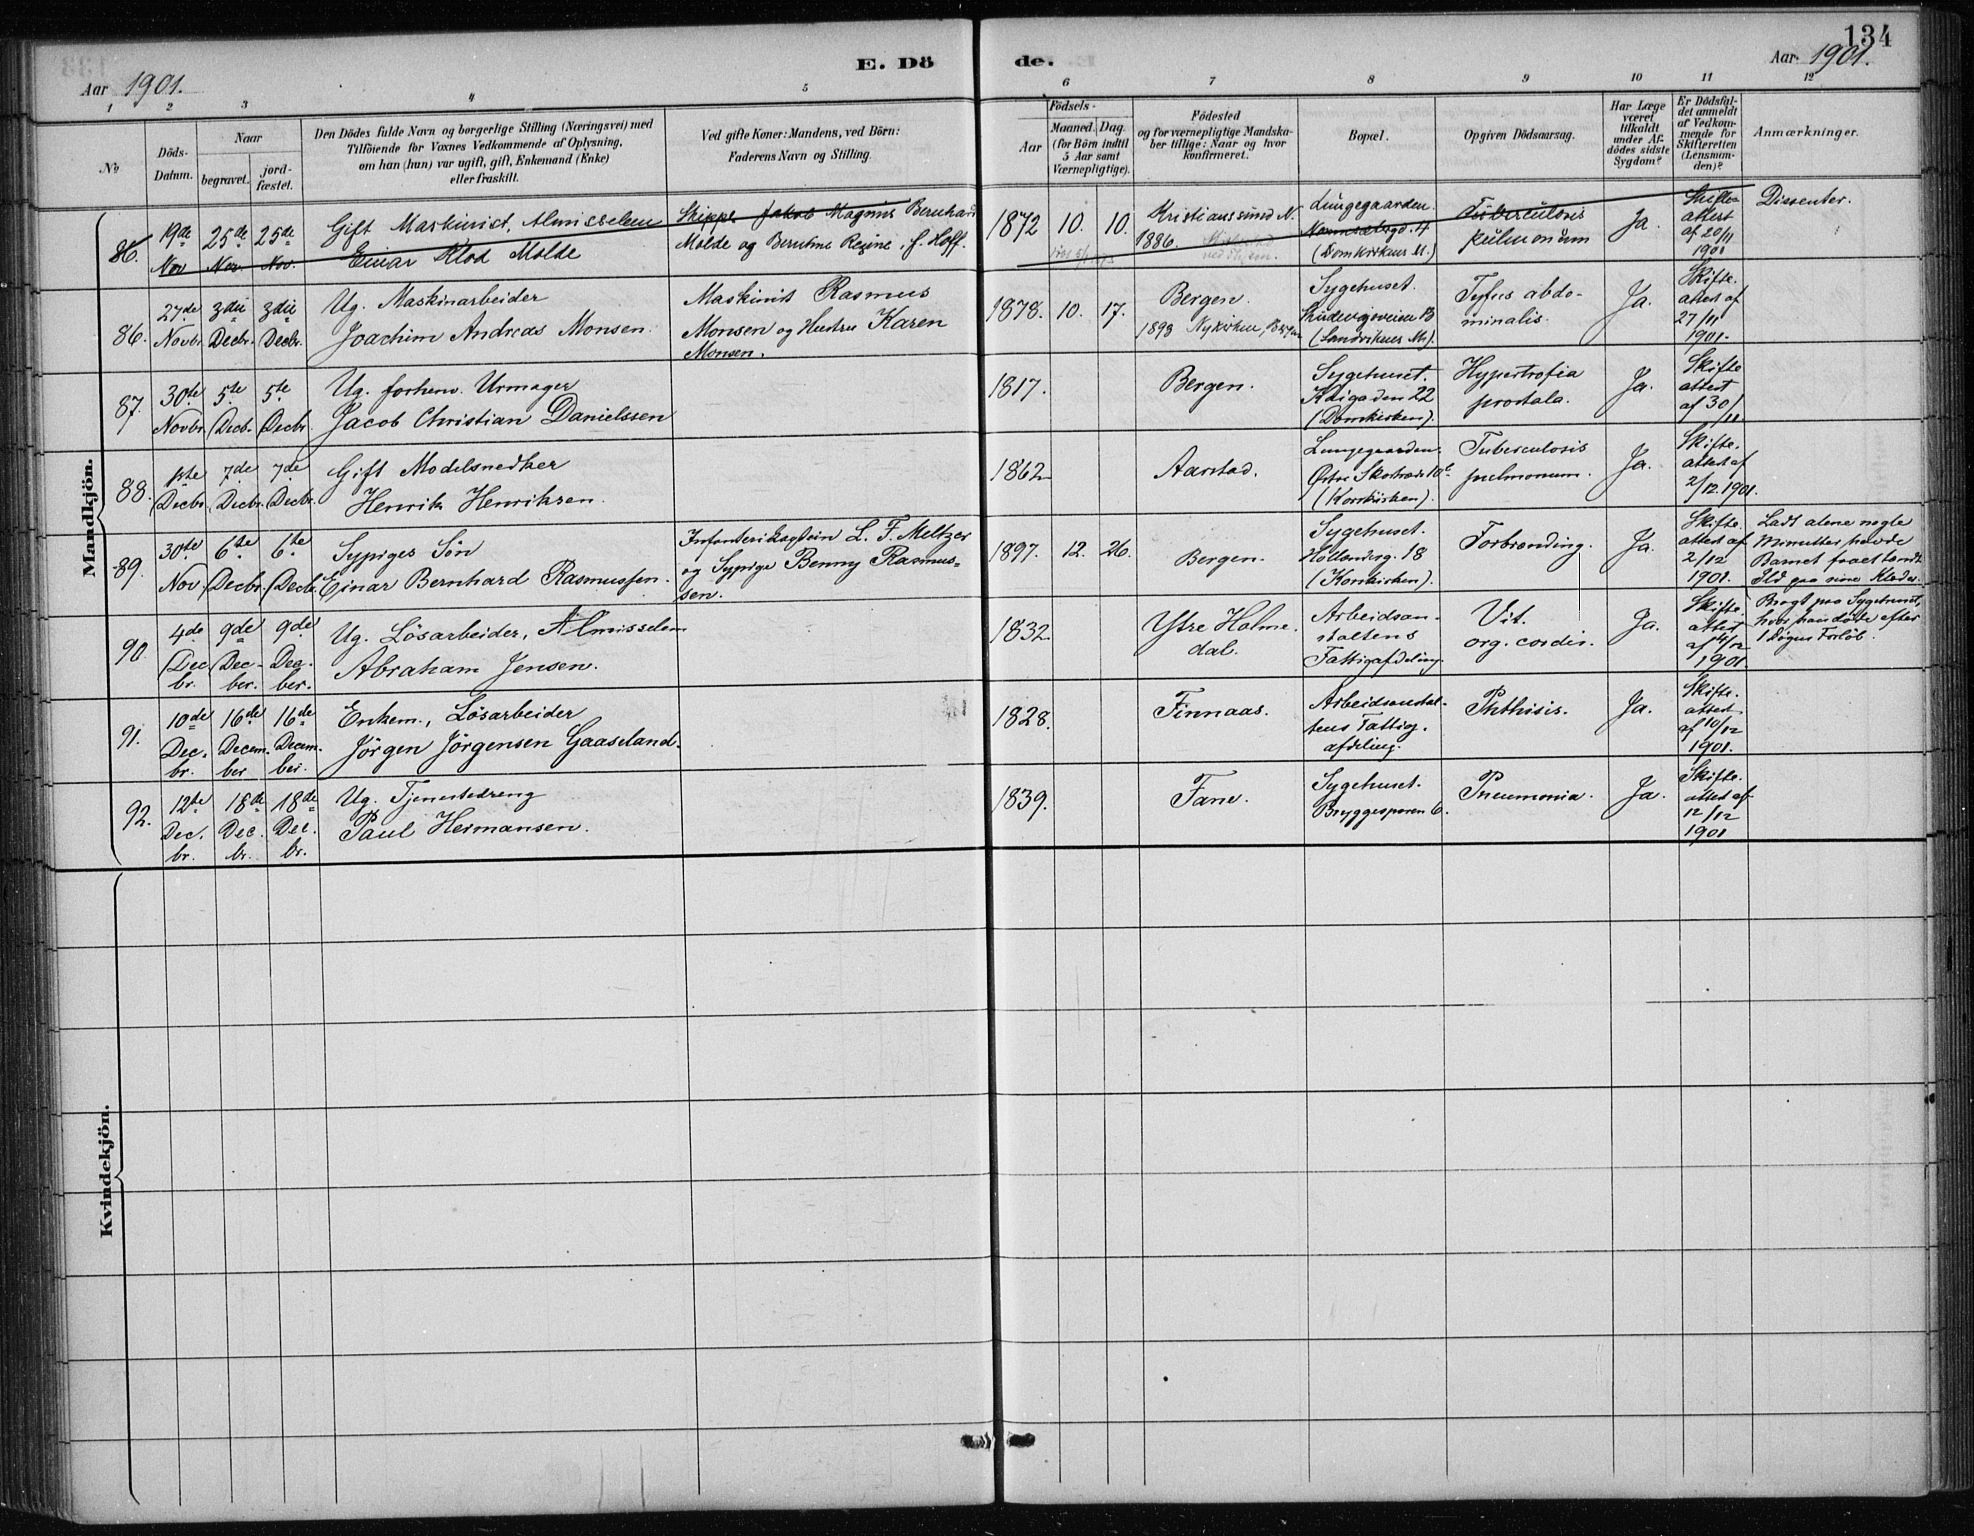 134
E. Dö de.
Aar 1901.
Aar 1901.
1 2 3 4 5 6 7 8 9 10 11 12
No
Döds-
Datum.
Naar
begravet.
jord-
fæstet.
Den Dödes fulde Navn og borgerlige Stilling (Næringsvei) med
Tilföiende for Voxnes Vedkommende af Oplysning,
om han (hun) var ugift, gift, Enkemand (Enke)
eller fraskilt.
Ved gifte Koner: Mandens, ved Börn:
Faderens Navn og Stilling.
Födsels-
Aar
Maaned. Dag.
(for Börn indtil
5 Aar samt
Værnepligtige).
Födested
og for værnepligtige Mandska-
ber tillige: Naar og hvor
konfirmeret.
Bopæl.
Opgiven Dödsaarsag.
Har Læge
været
tilkaldt
under Af-
dödes sidste
Sygdom?
Er Dödsfal-
det anmeldt
af Vedkom-
mende for
Skifteretten
(Lensman-
den)?
Anmærkninger.
Mandkjön.
86.
19de
Nov
25de
Nov.
25de
Nov.
Gift Maskinist, Almisselem
Einar Klod Molde
Skipper Jakob Magnus Bernhard
Molde og Berntine Regine, f. Hoff.
1872 10. 10.
Kristianssund N.
1886.
Lungegaarden.
(Domkirkens M.)
Tuberculosis
pulmonum
Ja.
Skifte-
attest
af 20/11
1901
Dissenter.
86.
27de
Novbr.
3die
Decbr.
3die
Decbr.
Ug. Maskinarbeider
Joachim Andreas Monsen.
Maskinist Rasmus
Monsen og Hustru Karen
Monsen.
1878. 10. 17.
Bergen.
1893 Nykirken, Bergen
Sygehuset.
(Sandvikens M.).
Tyfus abdo-
minalis.
Ja.
Skifte.
attest af
27/11
1901.
87.
30te
Novbr.
5te
Decb.
5te
Decbr.
Ug. forhenv. Urmager
Jacob Christian Danielssen
1817.
Bergen.
Sygehuset.
Kaigaden 22
(Domkirken).
Hypertrofia
prostata.
Ja.
Skifte
attest
af 30/
11.
88.
1ste
Decbr.
7de
Decbr.
7de
Decbr.
Gift Modelsnedker
Henrik Henriksen.
1862
Aarstad.
Lungegaarden.
(Korskirken).
Tuberculosis
pulmonum.
Ja.
Skifte.
attest af
2/12 1901.
89.
30te
Nov.
6te
Decbr.
6te
Decbr.
Sypiges Sön
Einar Bernhard Rasmussen.
Infanterikaptein L. F. Meltzer
og Sypige Benny Rasmus-
sen.
1897. 12. 26.
Bergen.
Sygehuset.
Hollenderg. 18
(Korskirken).
Forbrænding.
Ja.
Skifte.
attest af
2/12
1901.
Ladt alene nogle
Minutter havde
Barnet faaet tændt
Ild paa sine Klæder.
Bragt paa Sygehuset,
hvor han döde efter
1 Dögns Forlöb.
90.
4de
Dec
br.
9de
Dec-
ber.
9de
Dec-
ber.
Ug. Lösarbeider, Almisselem
Abraham Jensen.
1832
Ytre Holme.
dal.
Arbeidsan-
staltens
Fattigafdeling.
Vit.
org. cordis.
Ja.
Skifte.
attest
af 4/12
1901
91.
10de
Dec.
br.
16de
Decem.
ber
16de
Decem.
ber.
Enkem., Lösarbeider
Jörgen Jörgensen Gaaseland.
1828.
Finnaas.
Arbeidsanstal-
tens Fattig.
afdeling.
Phthisis.
Ja.
Skifte.
attest
af 10/12
1901.
92.
12te
Dec.
br.
18de
Dec.
br.
18de
Dec.
br.
Ug. Tjenestedreng
Paul Hermansen.
1839.
Fane.
Sygehuset.
Bryggesporen 6.
Pneumonia.
Ja.
Skifte.
attest af
12/12
1901
Kvindekjön.